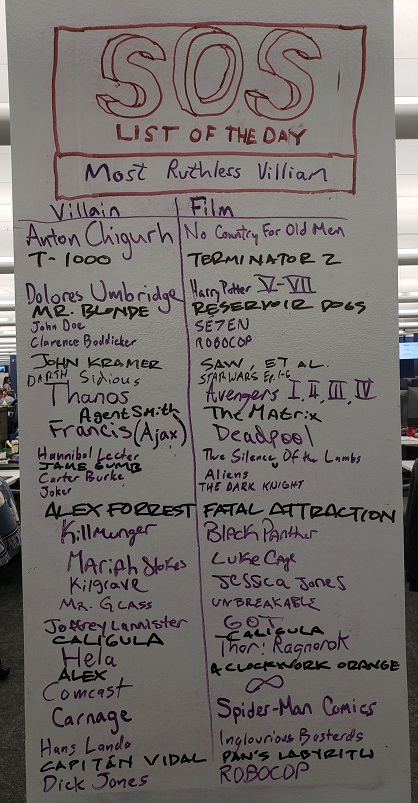 SOS
LIST OF THE DAY
Most Ruthless Villian
Villain Film
Anton Chigurh No Country For Old Men
T-1000 TERMINATOR 2
Dolores Umbridge Harry Potter V-VII
MR. BLONDE RESERVOIR DOGS
John Doe SE7EN
Clarence Boddicker ROBOCOP
JOHN KRAMER SAW, ET AL.
DARTH Sidious STAR WARS Ep. 1-6
Thanos Avengers I, II, III, IV
Agent Smith The Matrix
Francis (Ajax) Deadpool
Hannibal Lecter The Silence Of the Lambs
JAME GUMB
Carter Burke Aliens
Joker THE DARK KNIGHT
ALEX FORREST FATAL ATTRACTION
Killmunger Black Panther
Mariah Stokes Luke Cage
Kilgrave Jessica Jones
MR. GLASS UNBREAKABLE
Joffrey Lannister GOT
CALIGULA CALIGULA
Hela Thor: Ragnarok
ALEX A CLOCKWORK ORANGE
Comcast ∞
Carnage Spider-Man Comics
Hans Landa Inglourious Basterds
CAPITÁN VIDAL PAN'S LABYRITH
Dick Jones ROBOCOP